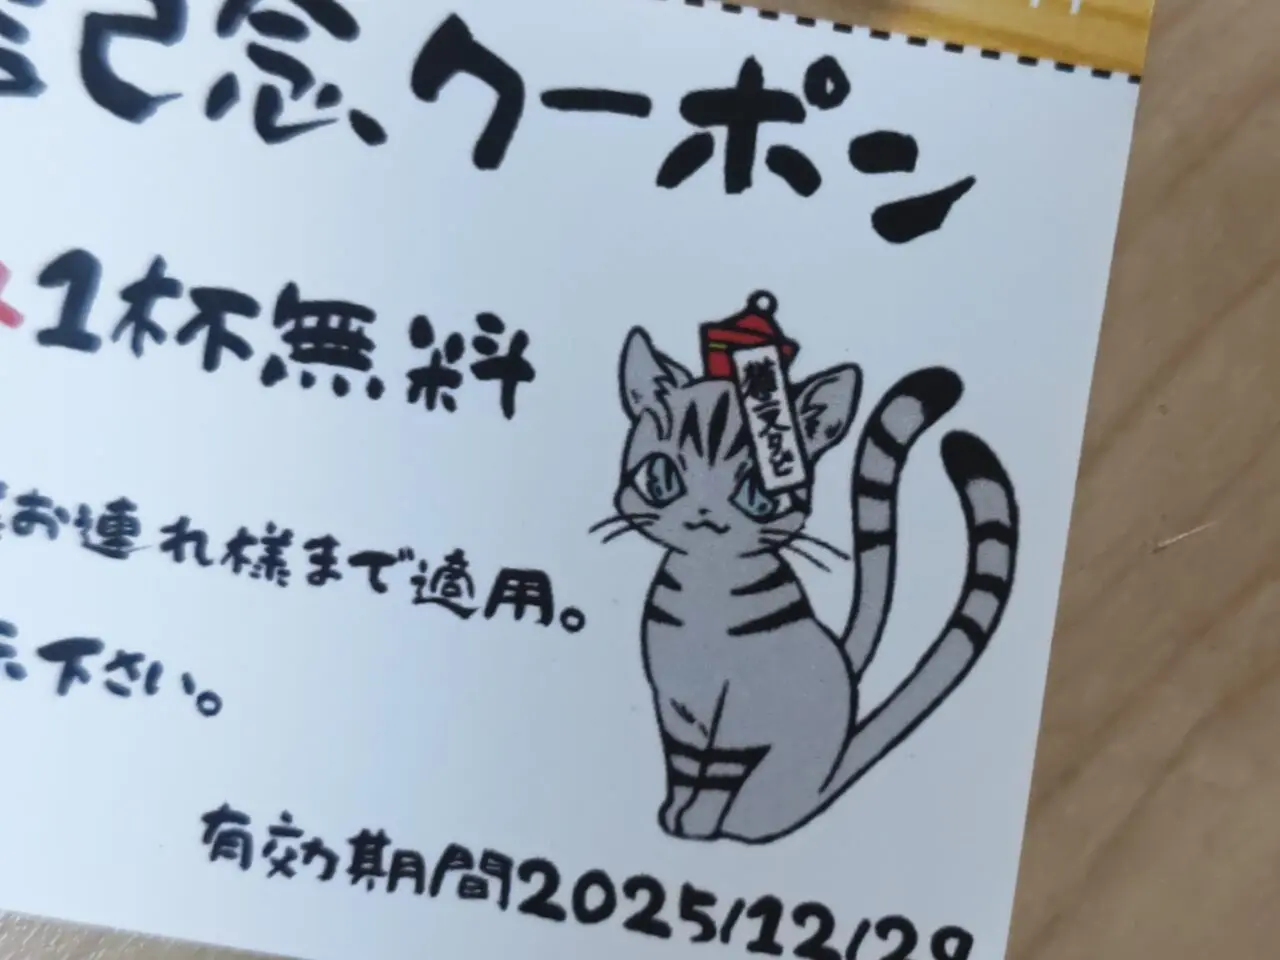 記念、クーポン
1杯無料
お連れ様まで適用。
下さい。
有効期間2025/12/29